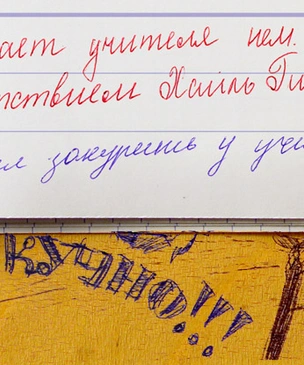 ает учителя нем.
тствием Хайль Ги
л закурить у учи
КУЧНО!!!